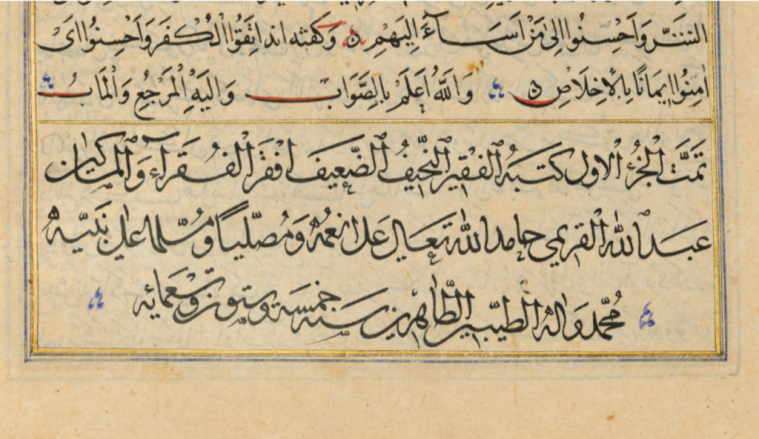 الشر وَاَحْسِنُوا اِلى مَنْ اَسَاءَ اِلَيهِمْ وَكفته اند اتَّقَوُا الْكُفْرَ وَاَحْسِنُوا اَىْ
اٰمِنُوا اِيمَانًا بِالْاِخْلَاصِ وَاللهُ اَعْلَمُ بِالصَّوَابِ وَاِلَيْهِ الْمَرْجِعُ وَالْمَابُ
تَمَّتَ الْجُزْءُ الْاَوّل كَتَبَهُ الفَقِيرُ النَّحِيفُ الضَّعِيفَ اَفْقَرُ الْفُقَرَآءِ وَالمَسَاكِين
عَبدُ اللهِ الْقَرِيمى حَامدا للهِ تَعَالى عَلى نِعَمِه وَمُصَلِّيًا وَمُسَلِّمًا عَلى نَبِيّهِ
مُحَمّد وَاٰلهِ الطَّيِّبينَ الطَّاهِرِينَ سَنَه خَمْسَة وَسِتّينَ وَتِسْعَمايه